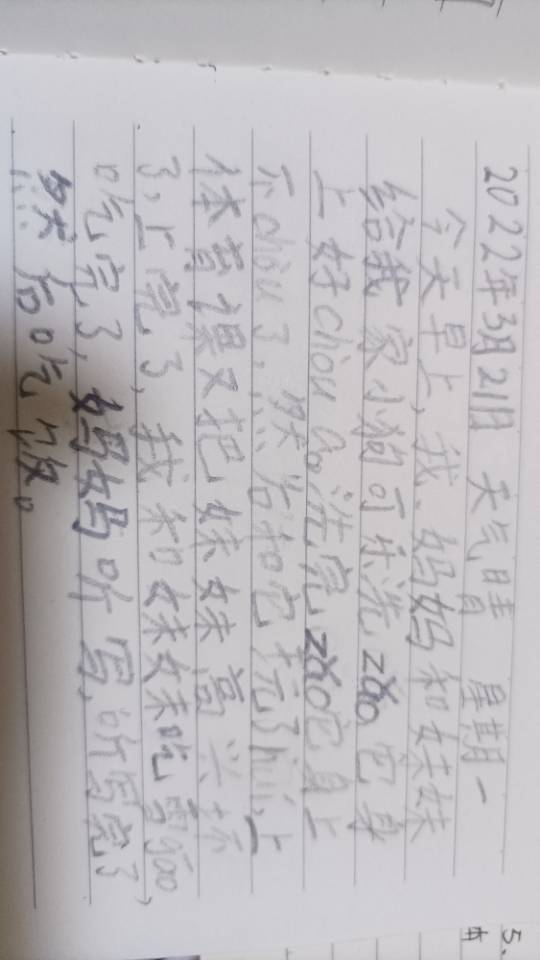 2022年3月21日 天气晴 星期一
今天早上,我、妈妈和妹妹
给我家小狗可乐洗zǎo。它身
上好chòu a。洗完zǎo它身上
不chòu了,然后和它玩了huì,上
体育课又把妹妹高兴坏
了,上完了,我和妹妹吃雪gāo,
吃完了,妈妈听写,听写完了
然后吃饭。
5.
本